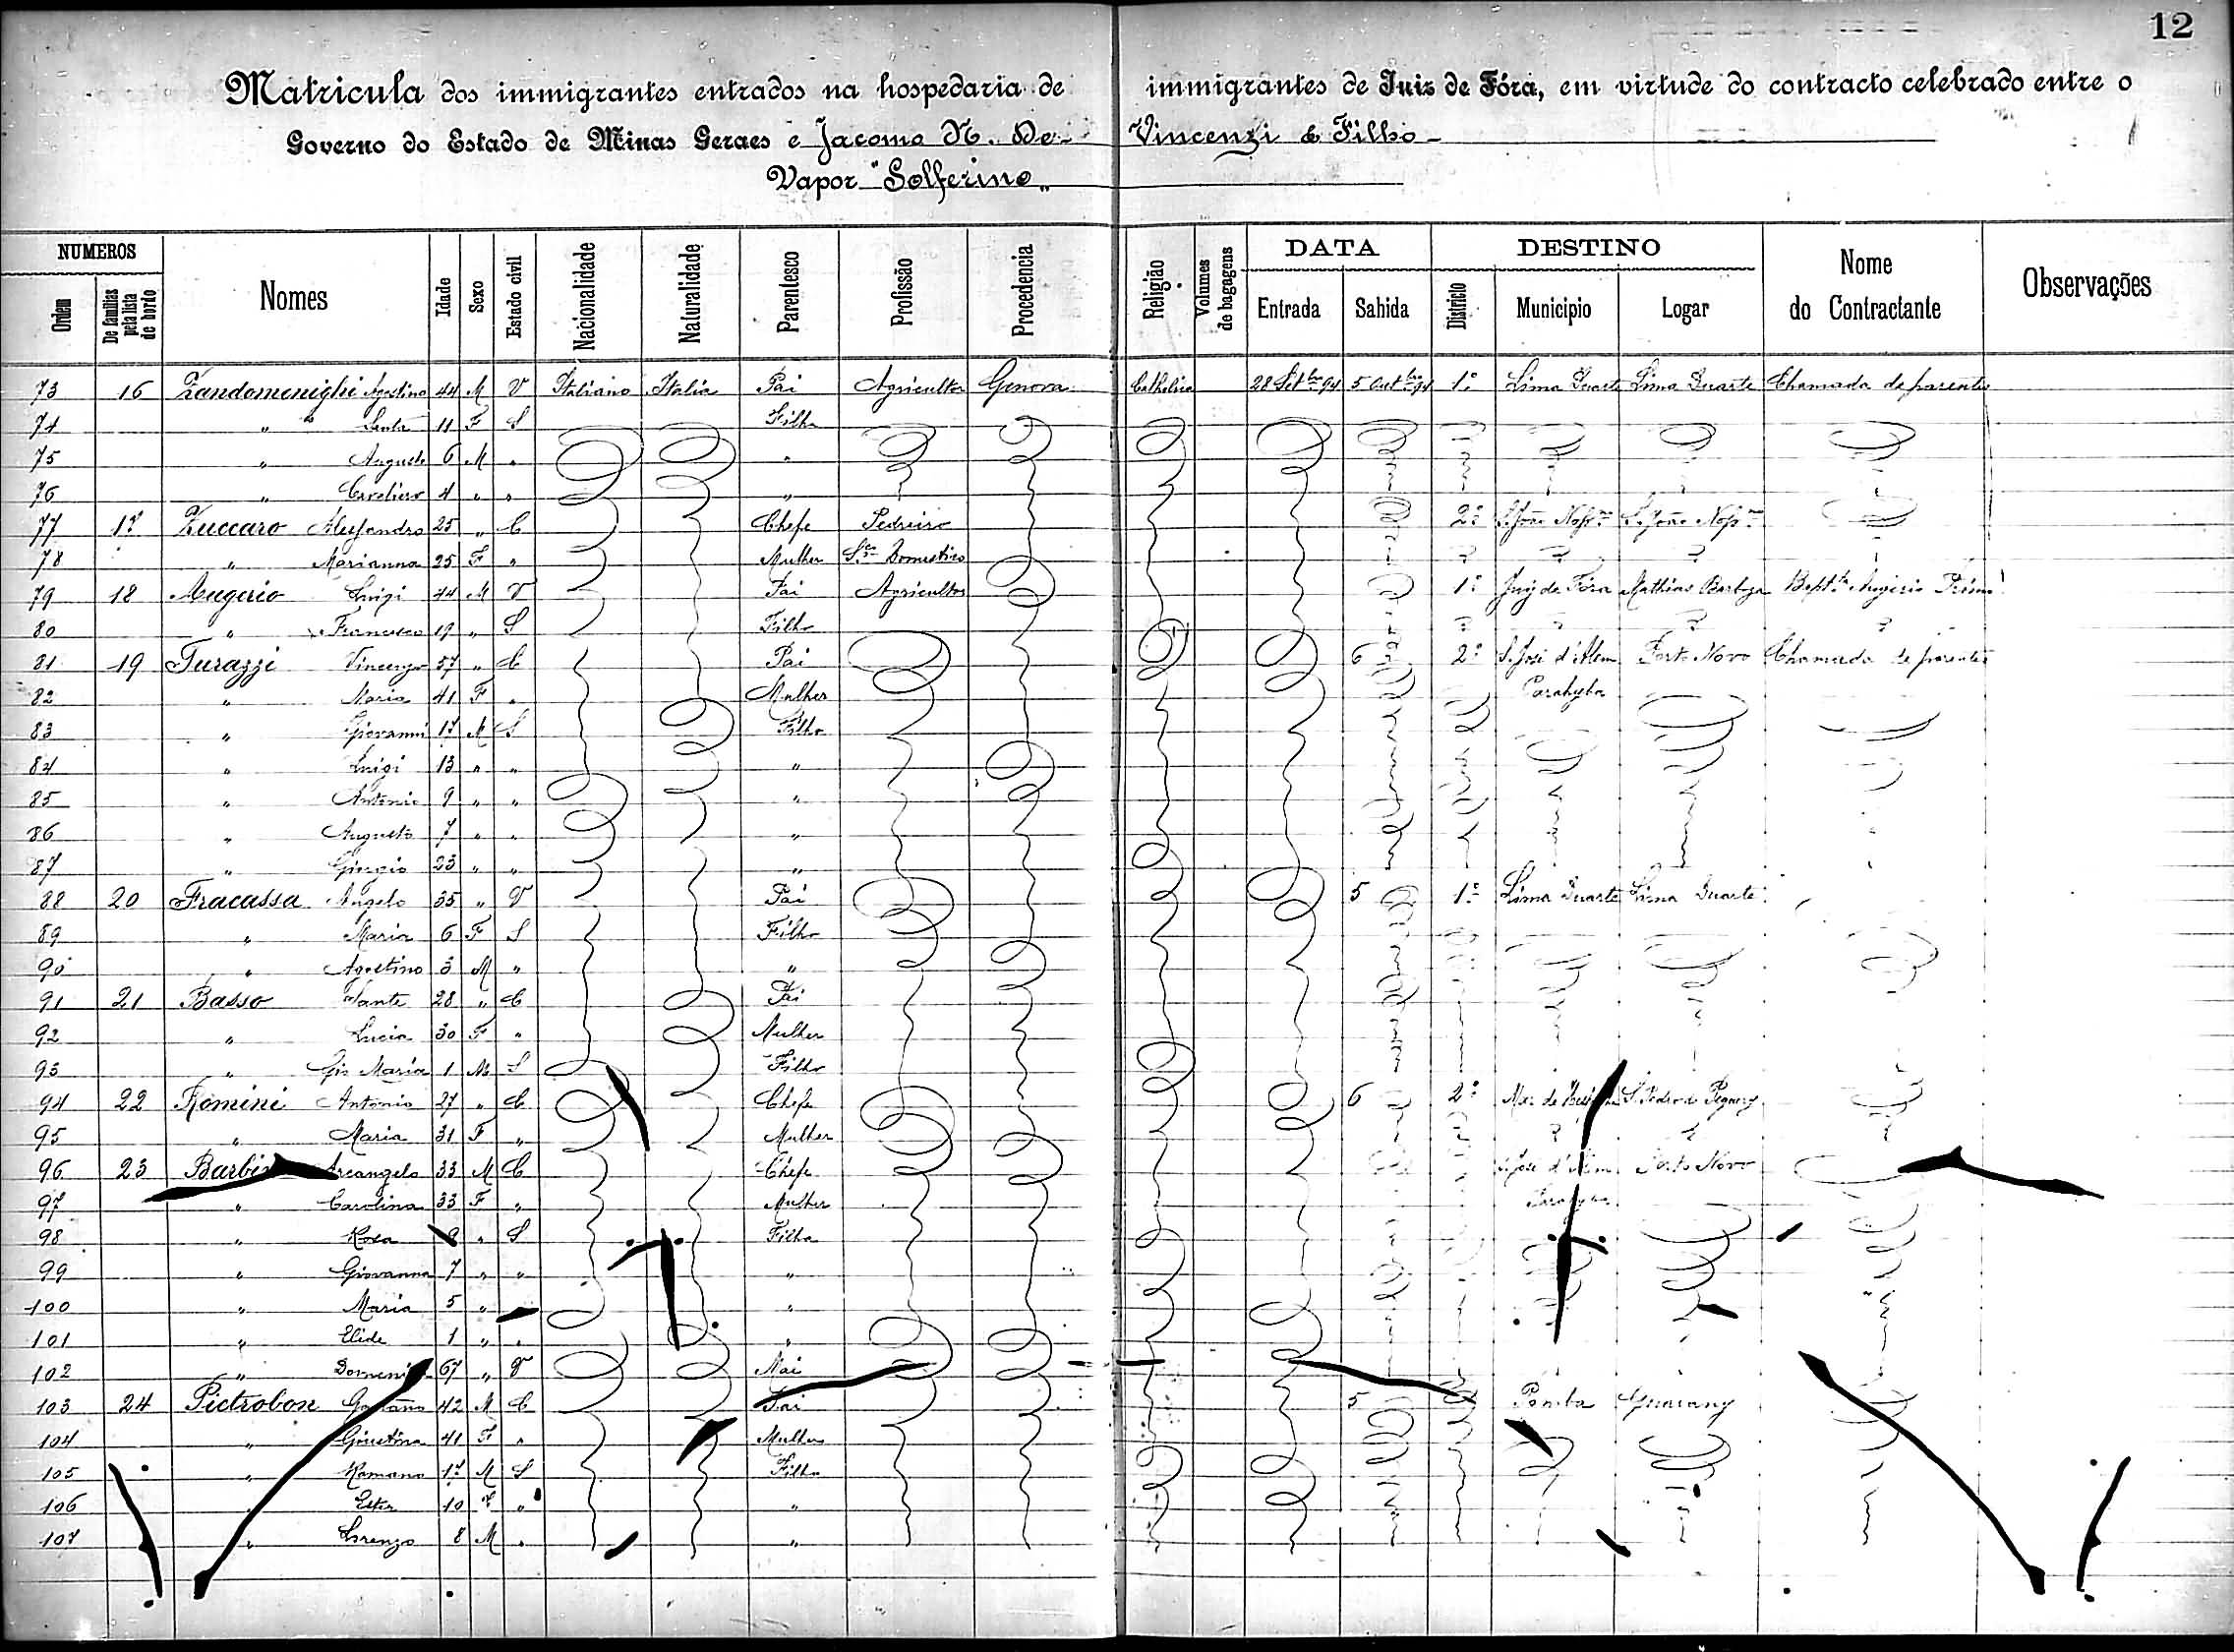 12
Matricula dos immigrantes entrados na hospedaria de immigrantes de Juiz de Fóra, em virtude do contracto celebrado entre o
Governo do Estado de Minas Geraes e Jacomo N. De- Vincenzi & Filho
Vapor "Solferino"
NUMEROS Nomes Idade Sexo Estado civil Nacionalidade Naturalidade Parentesco Profissão Procedencia Religião Volumes de bagagens DATA DESTINO Nome do Contractante Observações
Ordem De familias pela lista de bordo Entrada Sahida Districto Municipio Logar
73 16 Zandomenighi Agostino 44 M V Italiano Italia Pai Agricultor Genova Catholica 28 Setbro 94 5 Outbro 94 1º Lima Duarte Lima Duarte Chamada de parentes
74 " " Santa 11 F S Filha
75 " Augusto 6 M " "
76 " 4 " " "
77 17 Zuccaro Alessandro 25 " C Chefe Pedreiro 2º S. João Nepno S. João Nepno
78 " Marianna 25 F " Mulher Sço Domestico " " "
79 18 Mugerio Luigi 44 M V Pai Agricultor 1º Juiz de Fóra Mathias Barboza Bapta Mugerio Primo
80 " Francesco 19 " S Filho " " " "
81 19 Turazzi Vincenzo 57 " C Pai 6 2º S. José d'Alem Porto Novo Chamada de parentes
82 " Maria 41 F " Mulher Parahyba
83 " Giovanni 17 M S Filho
84 " Luigi 13 " " "
85 " Antonio 9 " " "
86 " Augusto 7 " " "
87 " Giorgio 23 " " "
88 20 Fracassa Angelo 35 " V Pai 5 1º Lima Duarte Lima Duarte
89 " Maria 6 F S Filho
90 " Agostino 3 M " "
91 21 Basso Sante 28 " C Pai
92 " Lucia 30 F " Mulher
93 " Gio Maria 1 M S Filho
94 22 Romini Antonio 27 " C Chefe 6 2º Mar de S. Pedro de Pequery
95 " Maria 31 F " Mulher " "
96 23 Arcangelo 33 M C Chefe S. José d'Alem Porto Novo
97 " Carolina 33 F " Mulher Parahyba
98 " Rosa 9 " S Filha
99 " Giovanna 7 " " "
100 " Maria 5 " "
101 " Elide 1 " " "
102 " 67 " V Mai
103 24 Pietrobon Gaetano 42 M C Pai 5 Pomba Guarany
104 " Giustina 41 F " Mulher
105 " Romano 17 M S Filho
106 " Ester 10 F " "
107 " Lorenzo 8 M " "